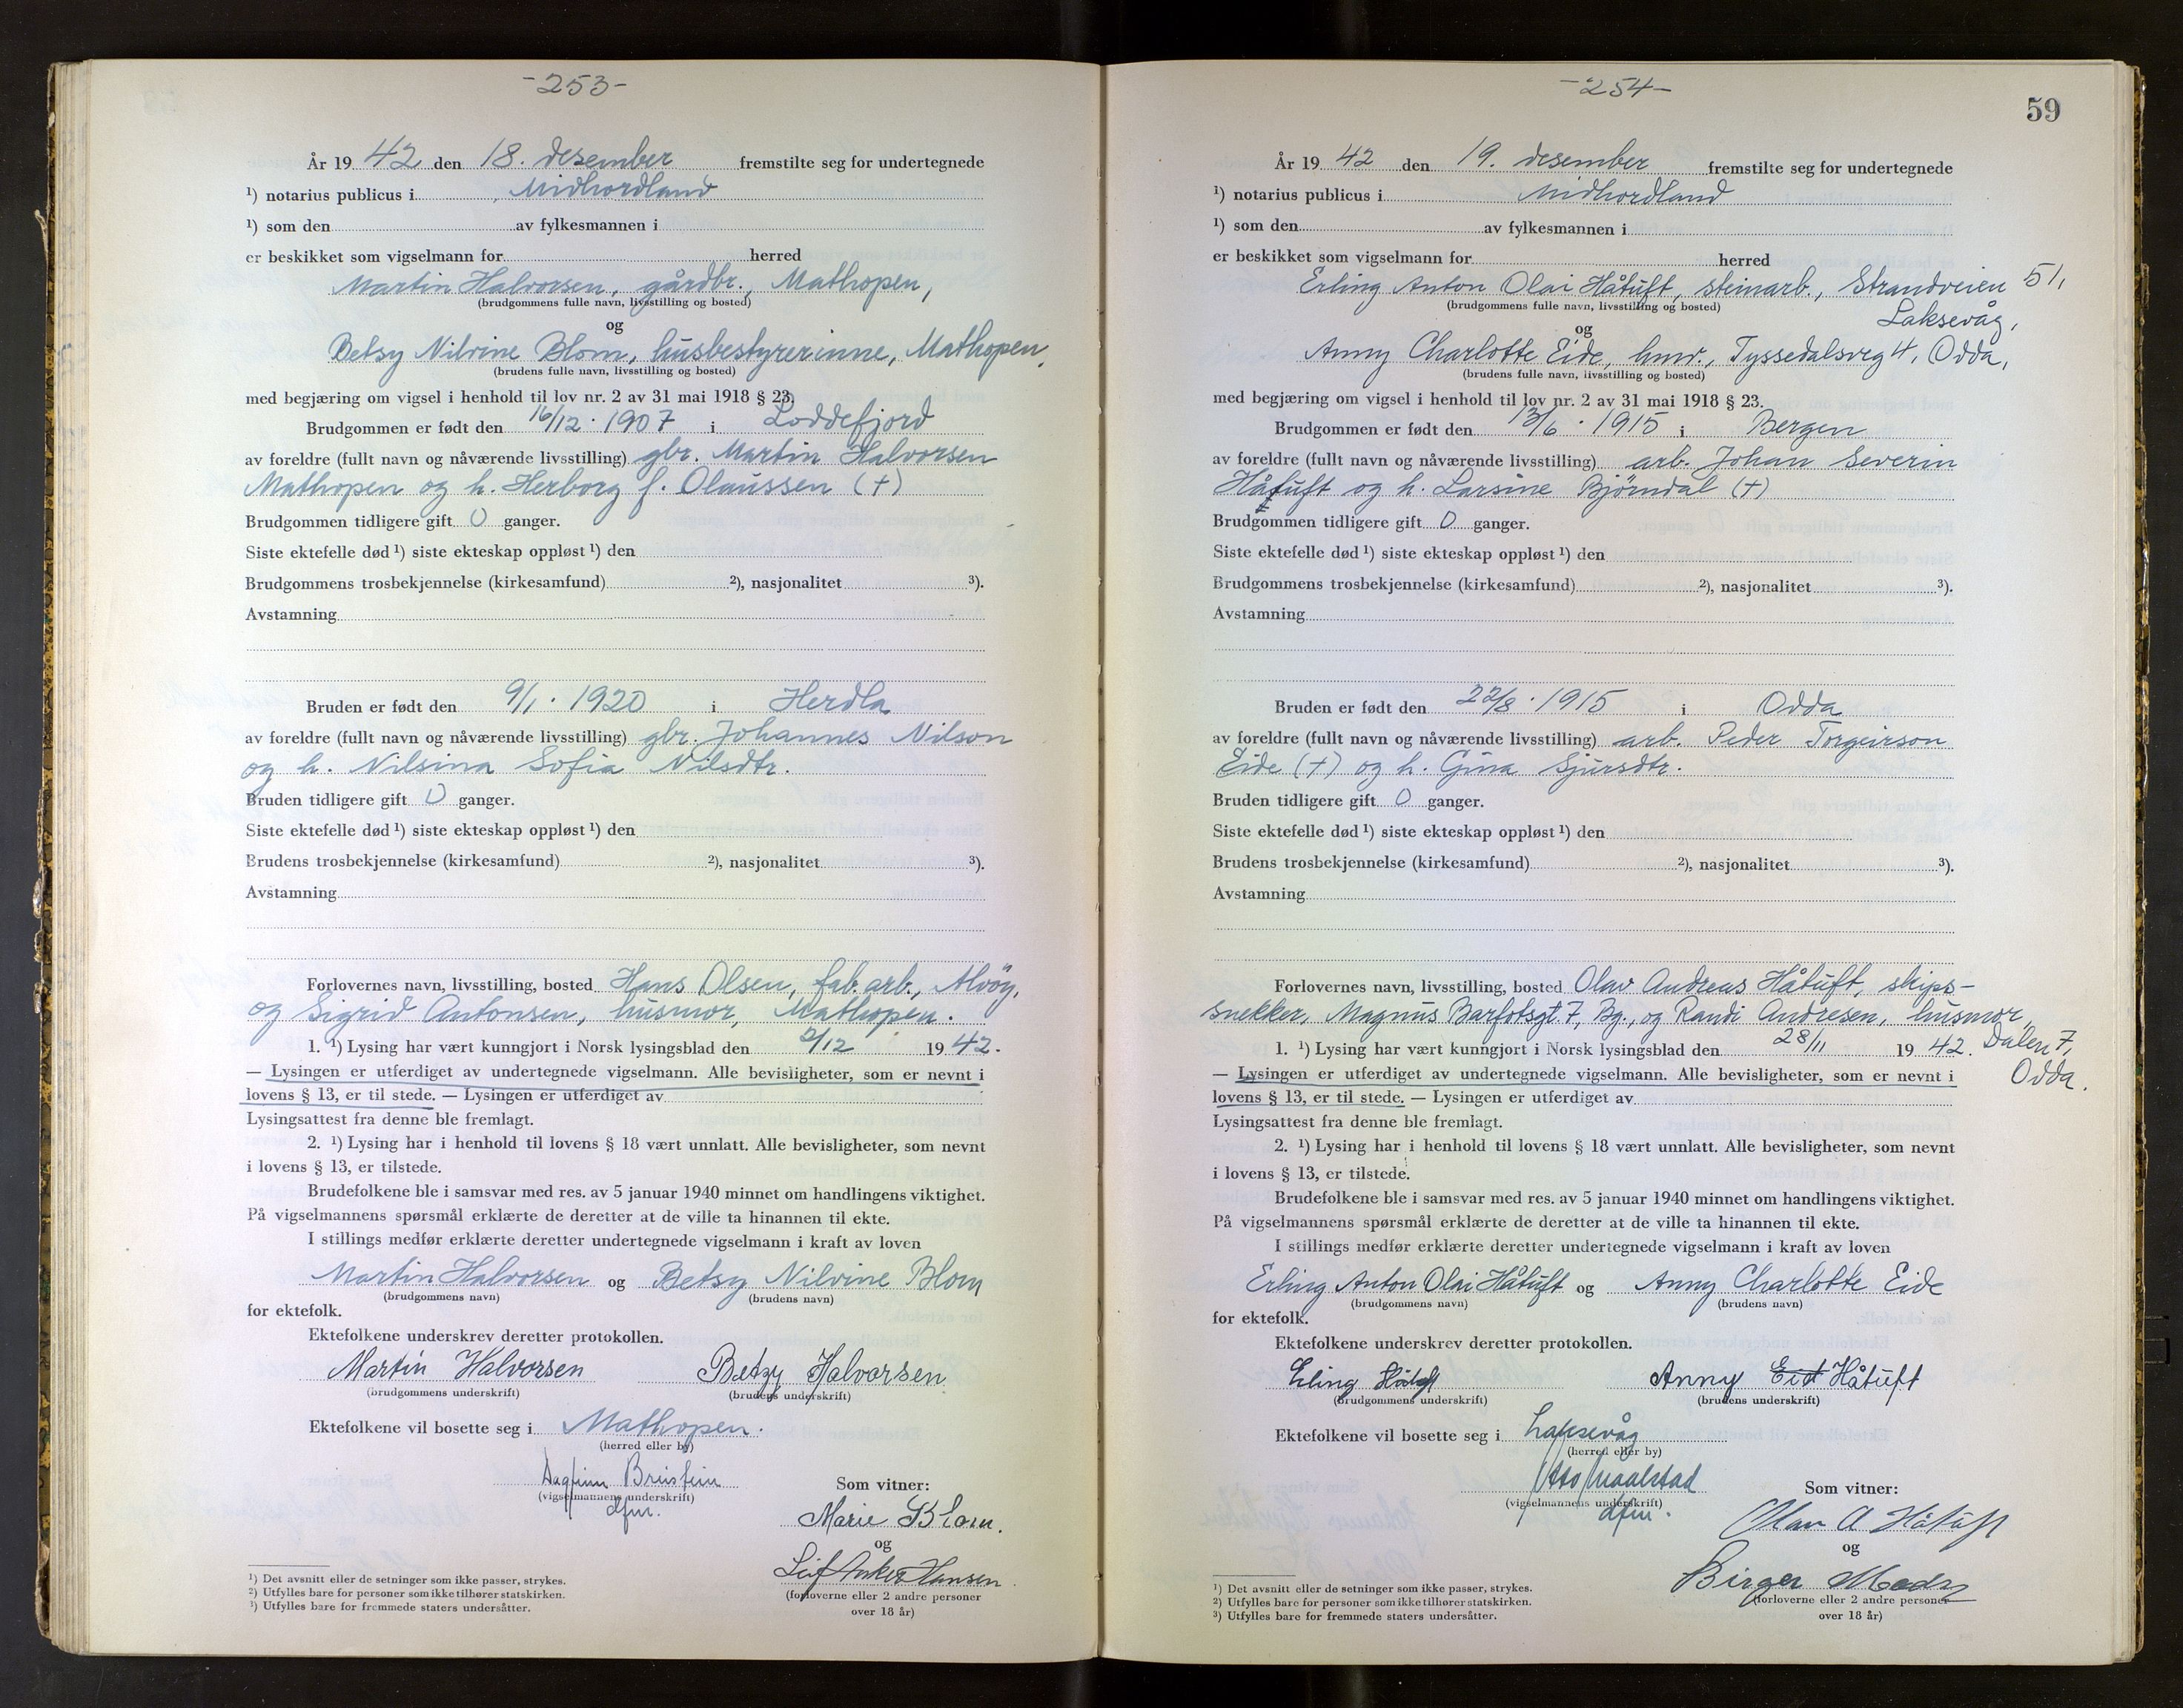 -253-
År 19 42 den 18. desember fremstilte seg for undertegnede
¹) notarius publicus i Midhordland
¹) som den av fylkesmannen i
er beskikket som vigselmann for herred
Martin Halvorsen, gårdbr., Mathopen,
(brudgommens fulle navn, livsstilling og bosted)
og
Betsy Nilvine Blom, husbestyrerinne, Mathopen,
(brudens fulle navn, livsstilling og bosted)
med begjæring om vigsel i henhold til lov nr. 2 av 31 mai 1918 § 23.
Brudgommen er født den 16/12 · 1907 i Loddefjord
av foreldre (fullt navn og nåværende livsstilling) gbr. Martin Halvorsen
Mathopen og h. Herborg f. Olaussen (+)
Brudgommen tidligere gift 0 ganger.
Siste ektefelle død ¹) siste ekteskap oppløst ¹) den
Brudgommens trosbekjennelse (kirkesamfund) ²), nasjonalitet ³).
Avstamning
Bruden er født den 9/1 · 1920 i Herdla
av foreldre (fullt navn og nåværende livsstilling) gbr. Johannes Nilson
og h. Nilsina Sofia Nilsdtr.
Bruden tidligere gift 0 ganger.
Siste ektefelle død ¹) siste ekteskap oppløst ¹) den
Brudens trosbekjennelse (kirkesamfund) ²), nasjonalitet ³).
Avstamning
Forlovernes navn, livsstilling, bosted Hans Olsen, fab.arb., Alvöy,
og Sigrid Antonsen, husmor, Mathopen.
1. ¹) Lysing har vært kunngjort i Norsk lysingsblad den 2/12 19 42.
— Lysingen er utferdiget av undertegnede vigselmann. Alle bevisligheter, som er nevnt i
lovens § 13, er til stede. — Lysingen er utferdiget av
Lysingsattest fra denne ble fremlagt.
2. ¹) Lysing har i henhold til lovens § 18 vært unnlatt. Alle bevisligheter, som nevnt
i lovens § 13, er tilstede.
Brudefolkene ble i samsvar med res. av 5 januar 1940 minnet om handlingens viktighet.
På vigselmannens spørsmål erklærte de deretter at de ville ta hinannen til ekte.
I stillings medfør erklærte deretter undertegnede vigselmann i kraft av loven
Martin Halvorsen og Betsy Nilvine Blom
(brudgommens navn) (brudens navn)
for ektefolk.
Ektefolkene underskrev deretter protokollen.
Martin Halvorsen Betzy Halvorsen
(brudgommens underskrift) (brudens underskrift)
Ektefolkene vil bosette seg i Mathopen.
(herred eller by)
Dagfinn Breistein
(vigselmannens underskrift)
dfm.
Som vitner:
Marie Blom.
og
Leif Anker Hansen.
(forloverne eller 2 andre personer
over 18 år)
¹) Det avsnitt eller de setninger som ikke passer, strykes.
²) Utfylles bare for personer som ikke tilhører statskirken.
³) Utfylles bare for fremmede staters undersåtter.
-254-
59
År 19 42 den 19. desember fremstilte seg for undertegnede
¹) notarius publicus i Midhordland
¹) som den av fylkesmannen i
er beskikket som vigselmann for herred
Erling Anton Olai Håtuft, steinarb., Strandveien 51,
(brudgommens fulle navn, livsstilling og bosted)
Laksevåg,
og
Anny Charlotte Eide, hmv., Tyssedalsveg 4, Odda,
(brudens fulle navn, livsstilling og bosted)
med begjæring om vigsel i henhold til lov nr. 2 av 31 mai 1918 § 23.
Brudgommen er født den 13/6 · 1915 i Bergen
av foreldre (fullt navn og nåværende livsstilling) arb. Johan Severin
Håtuft og h. Larsine Björndal (+)
Brudgommen tidligere gift 0 ganger.
Siste ektefelle død ¹) siste ekteskap oppløst ¹) den
Brudgommens trosbekjennelse (kirkesamfund) ²), nasjonalitet ³).
Avstamning
Bruden er født den 22/8 · 1915 i Odda
av foreldre (fullt navn og nåværende livsstilling) arb. Peder Torgeirson
Eide (+) og h. Gina Sjursdtr.
Bruden tidligere gift 0 ganger.
Siste ektefelle død ¹) siste ekteskap oppløst ¹) den
Brudens trosbekjennelse (kirkesamfund) ²), nasjonalitet ³).
Avstamning
Forlovernes navn, livsstilling, bosted Olav Andreas Håtuft, skips-
snekker, Magnus Barfotsgt. 7, Bg., og Randi Andresen, husmor,
1. ¹) Lysing har vært kunngjort i Norsk lysingsblad den 28/11 19 42. Dalen 7,
Odda.
— Lysingen er utferdiget av undertegnede vigselmann. Alle bevisligheter, som er nevnt i
lovens § 13, er til stede. — Lysingen er utferdiget av
Lysingsattest fra denne ble fremlagt.
2. ¹) Lysing har i henhold til lovens § 18 vært unnlatt. Alle bevisligheter, som nevnt
i lovens § 13, er tilstede.
Brudefolkene ble i samsvar med res. av 5 januar 1940 minnet om handlingens viktighet.
På vigselmannens spørsmål erklærte de deretter at de ville ta hinannen til ekte.
I stillings medfør erklærte deretter undertegnede vigselmann i kraft av loven
Erling Anton Olai Håtuft og Anny Charlotte Eide
(brudgommens navn) (brudens navn)
for ektefolk.
Ektefolkene underskrev deretter protokollen.
Erling Håtuft Anny Eid Håtuft
(brudgommens underskrift) (brudens underskrift)
Ektefolkene vil bosette seg i Laksevåg
(herred eller by)
Otto
(vigselmannens underskrift)
dfm.
Som vitner:
Olav A Håtuft
og
Birger
(forloverne eller 2 andre personer
over 18 år)
¹) Det avsnitt eller de setninger som ikke passer, strykes.
²) Utfylles bare for personer som ikke tilhører statskirken.
³) Utfylles bare for fremmede staters undersåtter.